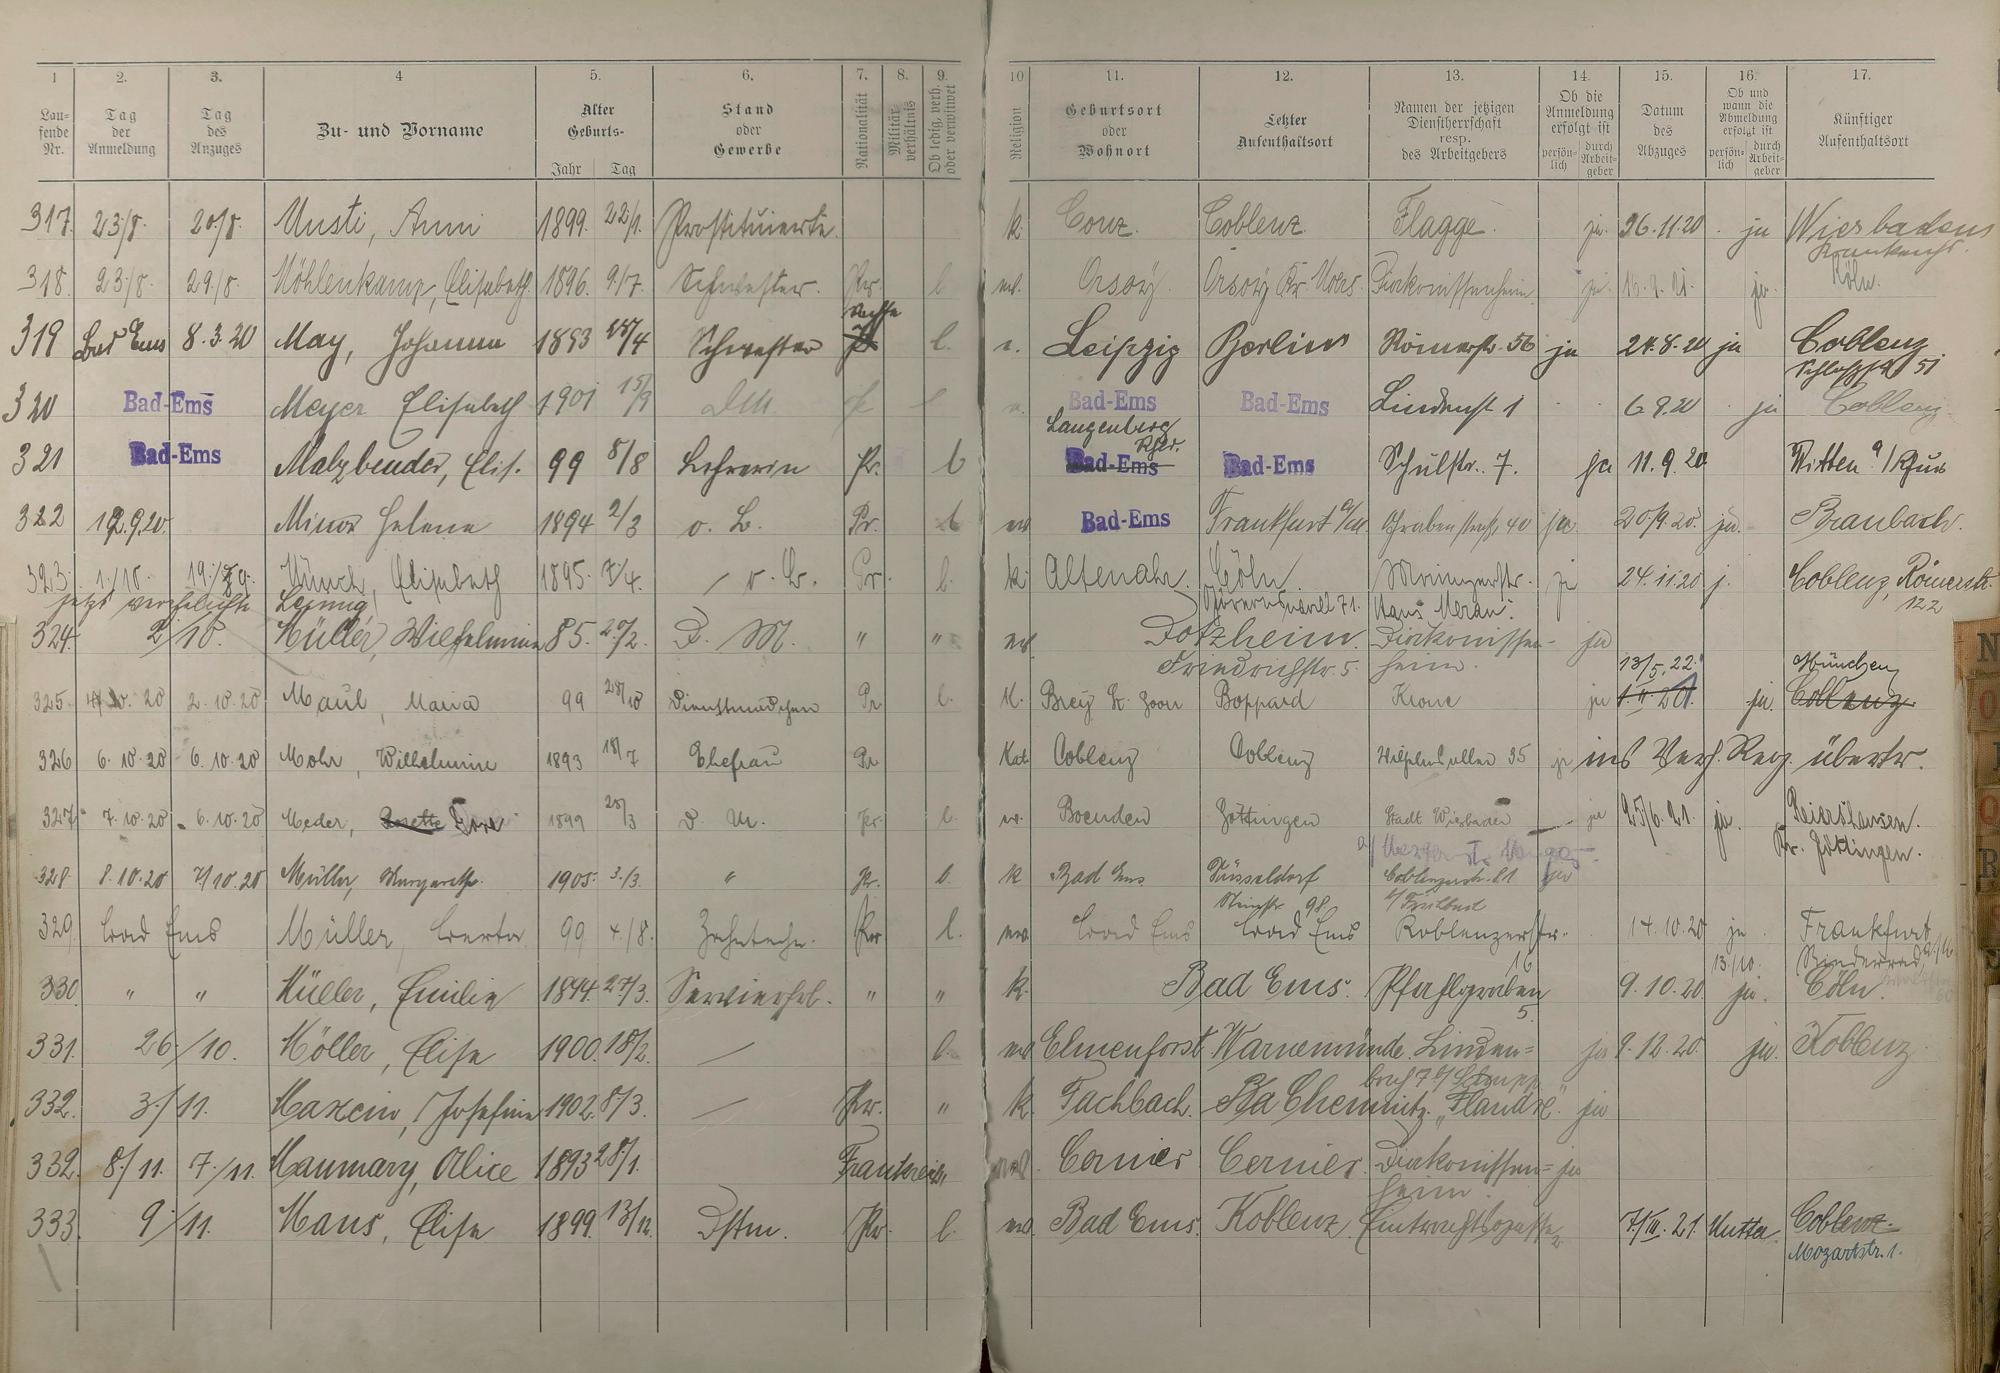 1 2. 3. 4 5. 6. 7. 8. 9. 10 11. 12. 13. 14. 15. 16. 17.
Lau-fende Nr. Tag der Anmeldung Tag des Anzuges Zu- und Vorname Alter Geburts- Jahr Tag Stand oder Gewerbe Nationalität Militärverhältnis Ob ledig, verh. oder verwitwet Religion Geburtsort oder Wohnort Letzter Aufenthaltsort Namen der jetzigen Dienstherrschaft resp. des Arbeitgebers Ob die Anmeldung erfolgt ist persön-lich durch Arbeit-geber Datum des Abzuges Ob und wann die Abmeldung erfolgt ist persön-lich durch Arbeit-geber Künftiger Aufenthaltsort
317. 23/8. 20/8. Musti, Anni 1899. 22/1. Prostituierte. k. Conz. Coblenz. Flagge. ja. 26.11.20 ja Wiesbaden
318. 23/8. 29/8. Möhlenkamp, Elisabeth 1896. 9/7. Schwester. Pr. l. ev. Orsoy. Orsoy Kr. Moers. Diakonissenheim ja. ja. Köln.
319 Bad Ems 8.3.20 May, Johanna 1893 28/4 Schwester l. Leipzig Berlin Römerstr. 56 ja 24.8.20 ja Coblenz
51
320 Bad-Ems Meyer Elisabeth 1901 15/9 Bad-Ems Bad-Ems Lindenst. 1 6 9.20 ja Coblenz
Langenberg
321 Bad-Ems Malzbender, Elis. 99 8/8 Lehrerin Pr. l Bad-Ems Bad-Ems Schulstr. 7. ja 11.9.20 Witten a/Ruhr
322 12.9.20. Minor Helene 1894 2/3 o. B. Pr. l ev Bad-Ems Frankfurt a/M. Grabenstraße 40 ja. 20/9.20. ja. Braubach.
323. 1./10. Münch, Elisabeth 1895. 7/4. o. B. Pr. l. k. Altenahr. Cöln Mainzerstr. ja 24.11.20 j. Coblenz, Römerstr. 122
jetzt verehelichte 71. Haus Meran.
324. 2/10. Müller, Wilhelmine 85. 20/2. D. M. " " ev. Dotzheim. Diakonissen- ja
Friedrichstr. 5. heim. 13/5.22. München
325. 2.10.20 Maul, Maria 99 28/10 Dienstmädchen Pr l. K. Brey Boppard Krone ja ja. Coblenz
326 6.10.20 6.10.20 Mohr, Wilhelmine 1893 18/7 Ehefrau Pr Kat Coblenz Coblenz Wilhelmsallee 35 ja ins Verh. Reg. übertr.
327 7.10.20 6.10.20 Meder, 1899 D. M. Pr. l. ev. Göttingen Stadt Wiesbaden ja 25/6.21. ja.
Kr. Göttingen.
328 8.10.20 7/10.20 Müller, Margarethe. 1905. 3/3. " Pr. l. k Bad Ems Düsseldorf Coblenzerstr. 81 ja
98.
329. Bad Ems Müller, Berta 99 4/8. Zahntechn. Pr l. ev. Bad Ems Bad Ems Koblenzerstr. 14.10.20 ja. Frankfurt a/M
16 13/10. Niederrad
330. " " Müller, Emilie 1894 27/3. Servierfrl. " " k. Bad Ems. Pfahlgraben 9.10.20 ja. Cöln.
5.
331. 26./10. Möller, Elise 1900. 18/2. l. ev Elmenhorst Warnemünde. Linden= ja 9.12.20. ja. Koblenz
bach 7
332. 3./11. Maxein, Josefine 1902. 8/3. Pr. " k. Fachbach. Chemnitz. "Flandre". ja
332. 8./11. 7./11. Maumary, Alice 1893 28/1. Frankreich. Cernier. Cernier. Diakonissen= ja
heim.
333. 9./11. Maus, Elise 1899. 13/12. Dstm. Pr. l. ev. Bad Ems. Koblenz. Eintrachtsgasse 7/III.21. Mutter. Coblenz.
Mozartstr. 1.
N
O
R